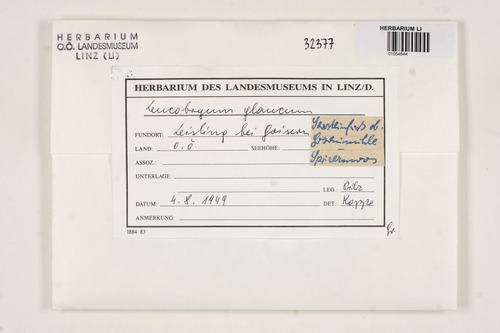 HERBARIUM
O.Ö. LANDESMUSEUM
LINZ (LI)
32377
HERBARIUM LI
01054644
HERBARIUM DES LANDESMUSEUMS IN LINZ/D.
Leucobryum glaucum
FUNDORT: Leisling bei Goisern
LAND: O.Ö. SEEHÖHE:
ASSOZ.:
Spitzenmoos
UNTERLAGE:
LEG.:
DATUM: 4.8.1949 DET.: Koppe
ANMERKUNG:
I884 83